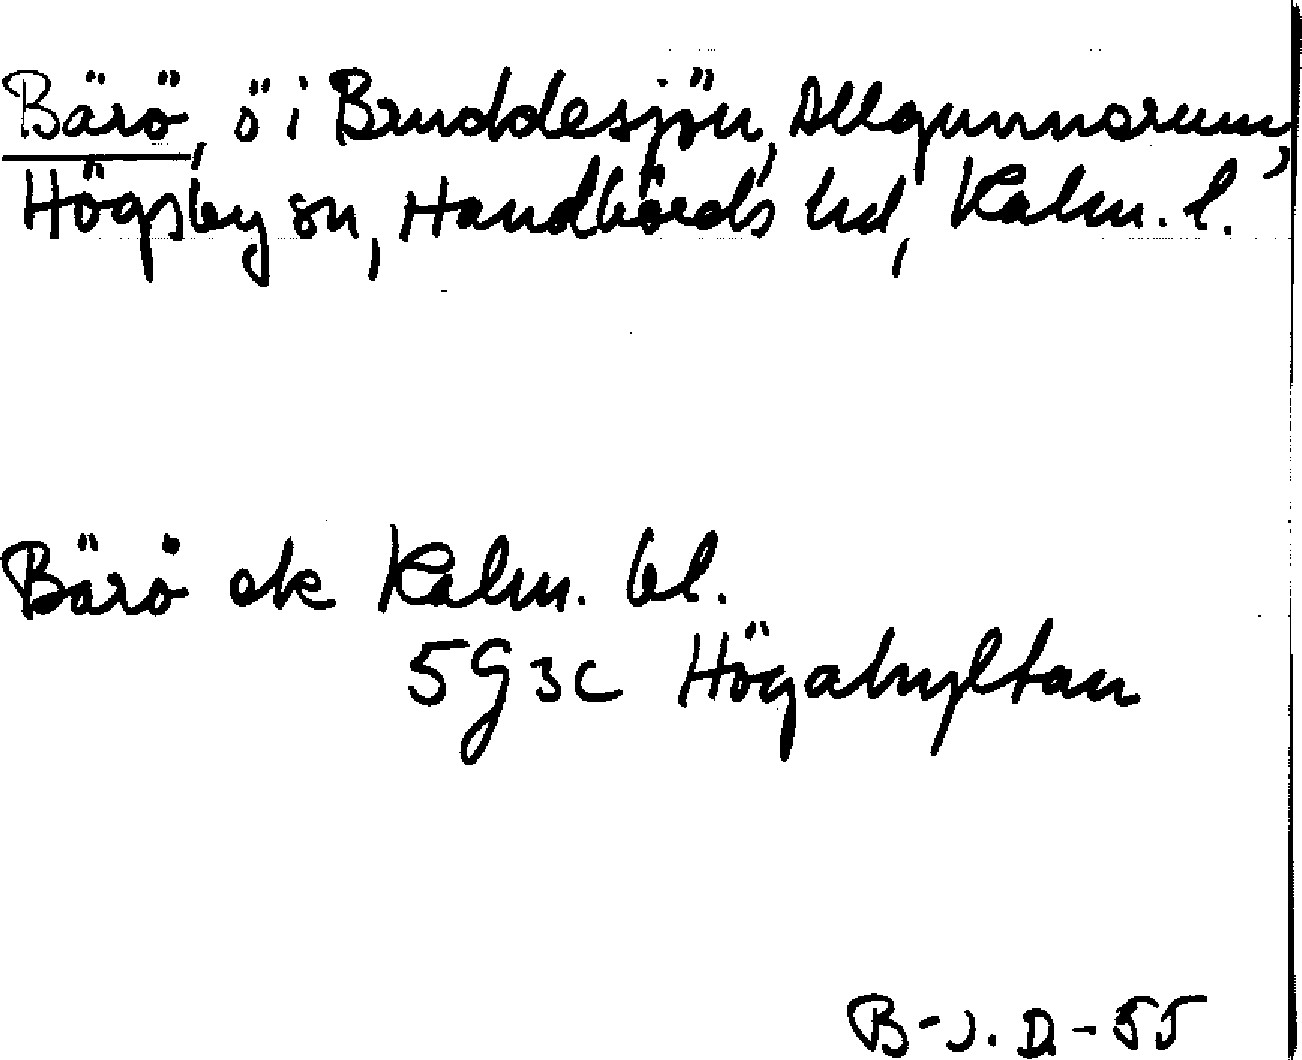 Bärö, ö i Bruddesjön, Allgunnarum,
Högsby sn, Handbörds hd, Kalm. l.
Bärö ek Kalm. bl.
5G3c Högahyltan
B-J. D-55